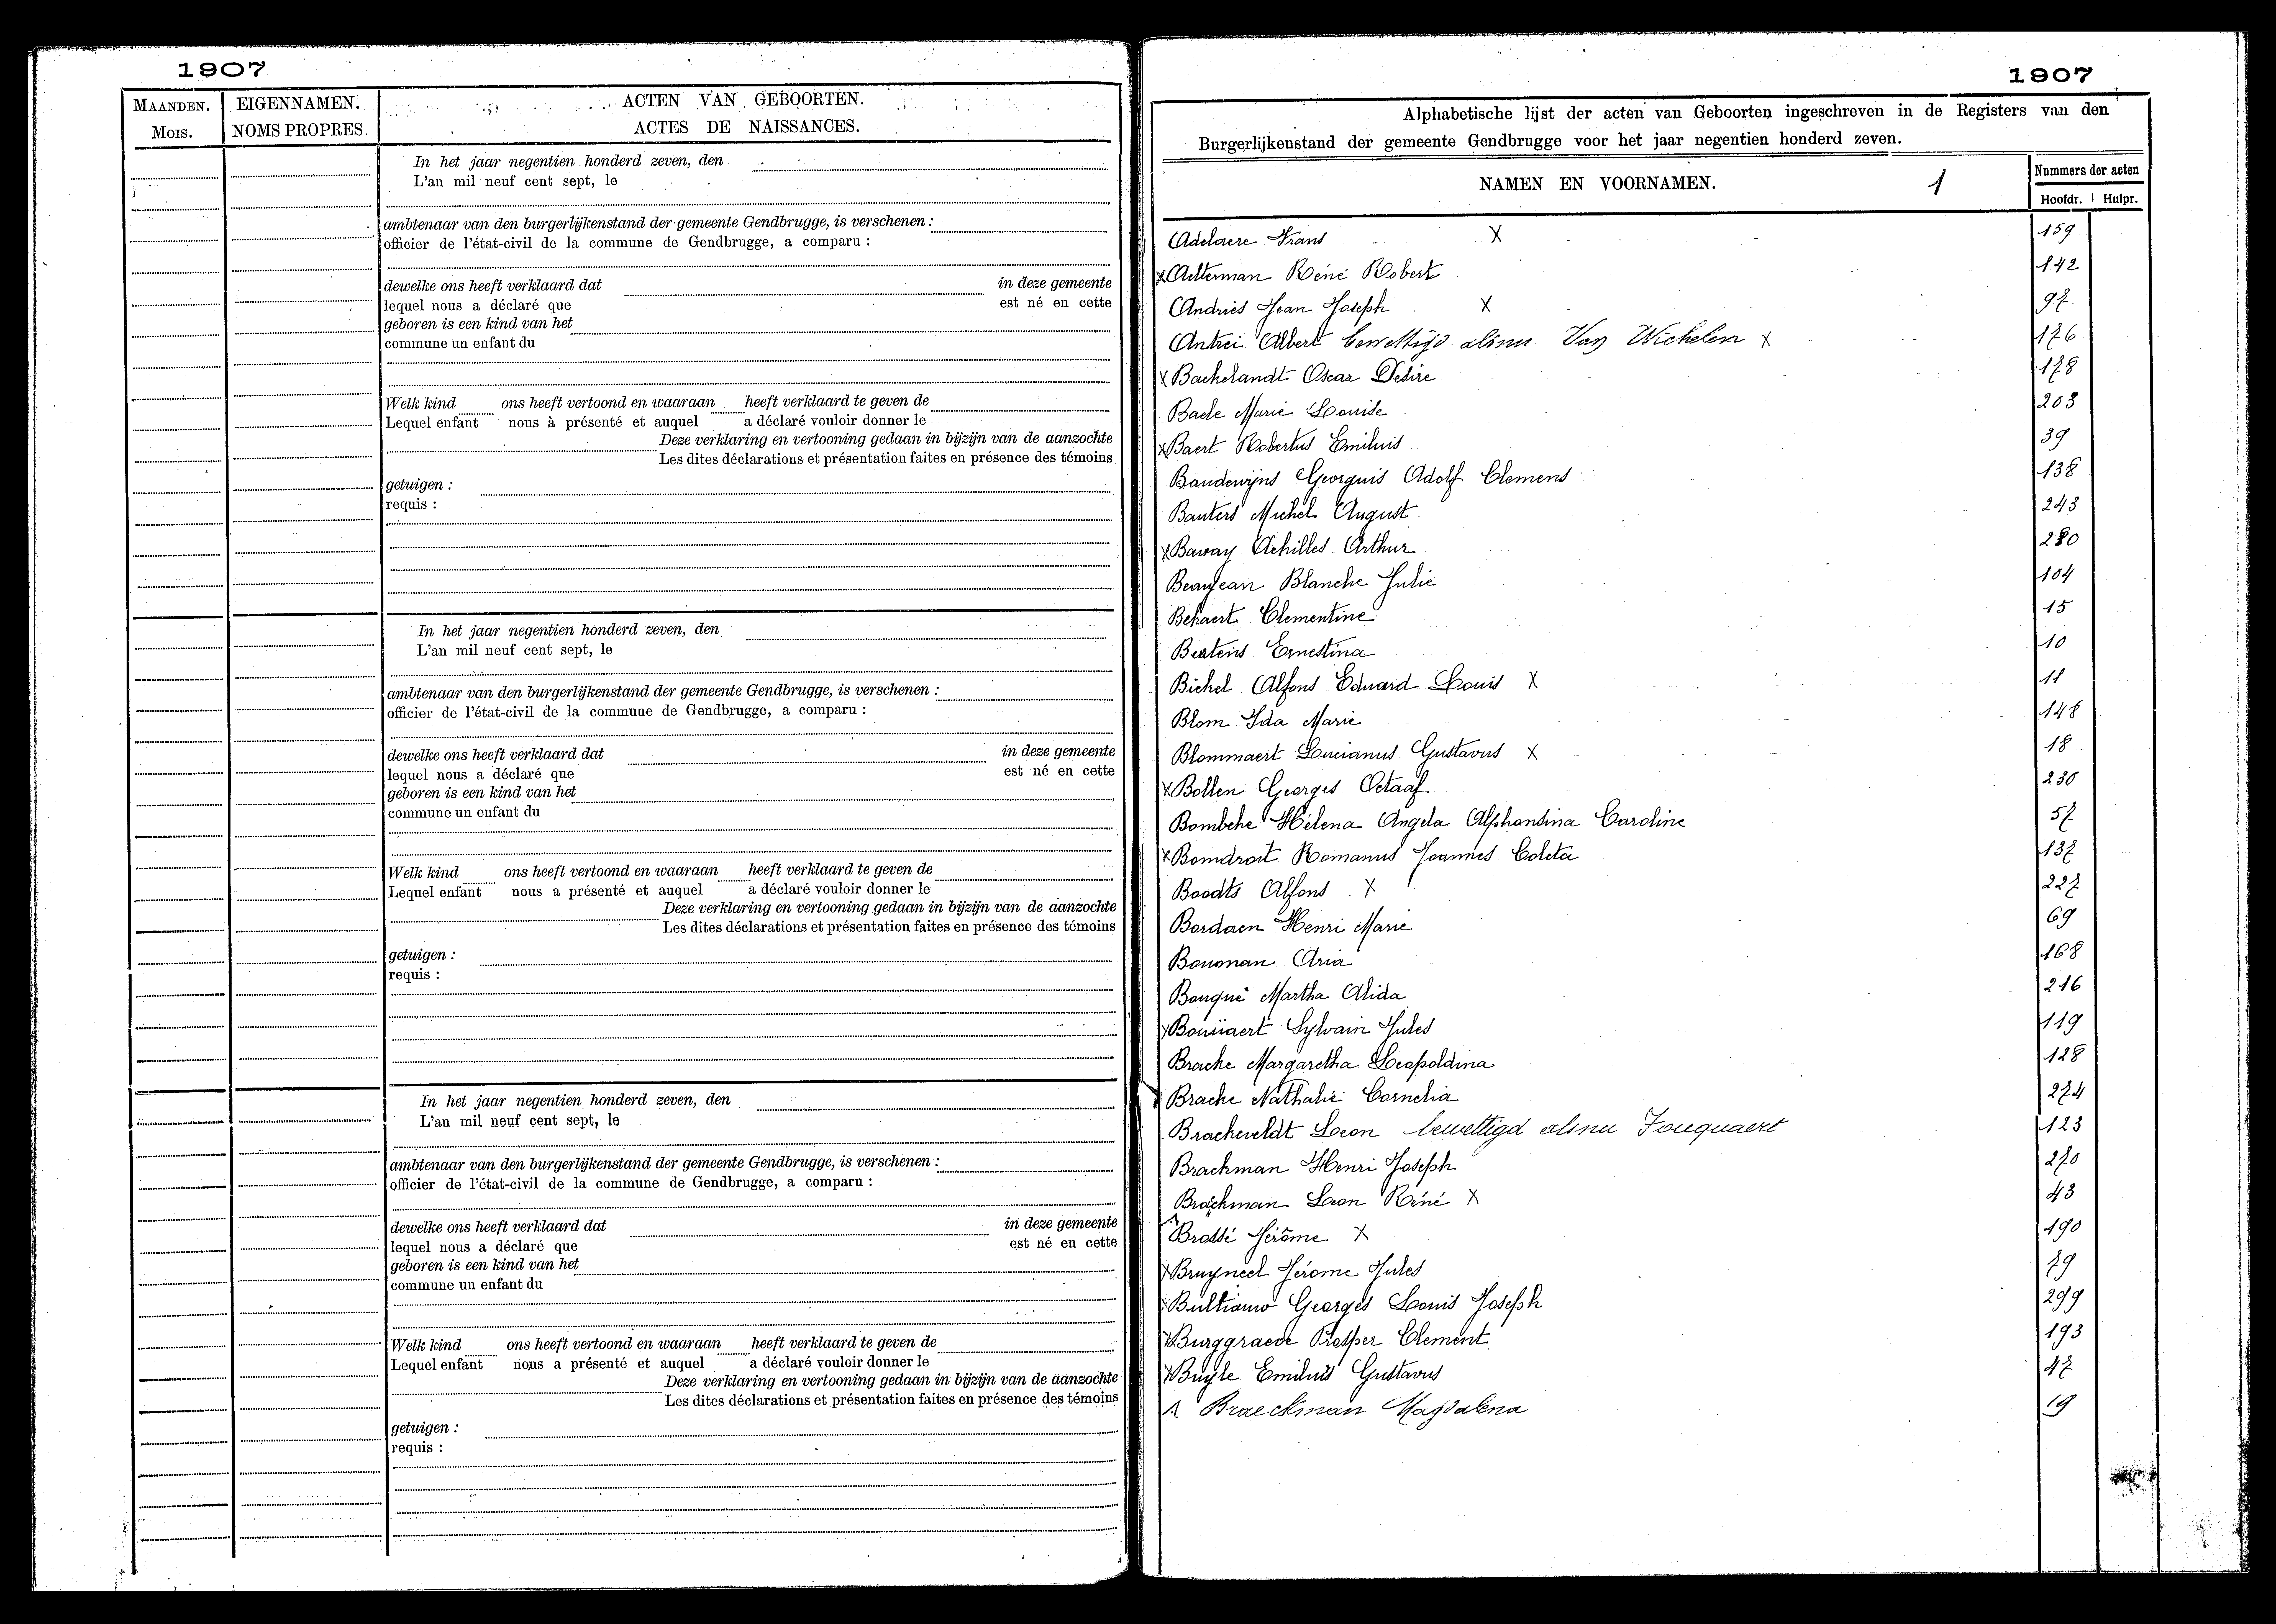 1907
MAANDEN.
MOIS.
EIGENNAMEN.
NOMS PROPRES.
ACTEN VAN GEBOORTEN.
ACTES DE NAISSANCES.
In het jaar negentien honderd zeven, den
L'an mil neuf cent sept, le
ambtenaar van den burgerlijkenstand der gemeente Gendbrugge, is verschenen :
officier de l'état-civil de la commune de Gendbrugge, a comparu :
dewelke ons heeft verklaard dat in deze gemeente
lequel nous a déclaré que est né en cette
geboren is een kind van het
commune un enfant du
Welk kind ons heeft vertoond en waaraan heeft verklaard te geven de
Lequel enfant nous à présenté et auquel a déclaré vouloir donner le
Deze verklaring en vertooning gedaan in bijzijn van de aanzochte
Les dites déclarations et présentation faites en présence des témoins
getuigen :
requis :
In het jaar negentien honderd zeven, den
L'an mil neuf cent sept, le
ambtenaar van den burgerlijkenstand der gemeente Gendbrugge, is verschenen :
officier de l'état-civil de la commune de Gendbrugge, a comparu :
dewelke ons heeft verklaard dat in deze gemeente
lequel nous a déclaré que est né en cette
geboren is een kind van het
commune un enfant du
Welk kind ons heeft vertoond en waaraan heeft verklaard te geven de
Lequel enfant nous a présenté et auquel a déclaré vouloir donner le
Deze verklaring en vertooning gedaan in bijzijn van de aanzochte
Les dites déclarations et présentation faites en présence des témoins
getuigen :
requis :
In het jaar negentien honderd zeven, den
L'an mil neuf cent sept, le
ambtenaar van den burgerlijkenstand der gemeente Gendbrugge, is verschenen :
officier de l'état-civil de la commune de Gendbrugge, a comparu :
dewelke ons heeft verklaard dat in deze gemeente
lequel nous a déclaré que est né en cette
geboren is een kind van het
commune un enfant du
Welk kind ons heeft vertoond en waaraan heeft verklaard te geven de
Lequel enfant nous a présenté et auquel a déclaré vouloir donner le
Deze verklaring en vertooning gedaan in bijzijn van de aanzochte
Les dites déclarations et présentation faites en présence des témoins
getuigen :
requis :
1907
Alphabetische lijst der acten van Geboorten ingeschreven in de Registers van den
Burgerlijkenstand der gemeente Gendbrugge voor het jaar negentien honderd zeven.
NAMEN EN VOORNAMEN. 1
Nummers der acten
Hoofdr. Hulpr.
Adelaere Frans X 159
X Aelterman Réné Robert 142
Andries Jean Joseph X 97
Antrei Albert bewettigd alsnu Van Wichelen X 176
X Backelandt Oscar Desire 178
Baele Marie Louise 203
X Baert Robertus Emiluis 39
Bauderijns Georguis Adolf Clemens 138
Bauters Michel August 243
X Bavay Achilles Arthur 280
Beaujean Blanche Julie 104
Bekaert Clementine 15
Bertens Ernestina 10
Bichel Alfons Eduard Louis X 11
Blom Ida Marie 148
Blommaert Lucianus Gustavus X 18
X Bollen Georges Octaaf 230
Bombeke Hélena Angela Alphonsina Caroline 57
X Bomdroit Romanus Joannes Coleta 137
Boodts Alfons X 227
Bordaen Henri Marie 69
Bouman Aria 168
Bouqué Martha Alida 216
X Bouüaert Sylvain Jules 119
Bracke Margaretha Leopoldina 128
Bracke Nathalie Cornelia 274
Brackeveldt Leon bewettigd alsnu Fouquaert 123
Brackman Henri Joseph 270
Brackman Leon Réné X 43
Brossé Jérôme X 190
X Bruyneel Jérome Jules 79
X Bultiauw Georges Louis Joseph 299
X Burggraeve Prosper Clement 193
X Buyle Emiluis Gustavus 47
Braeckman Magdalena 19